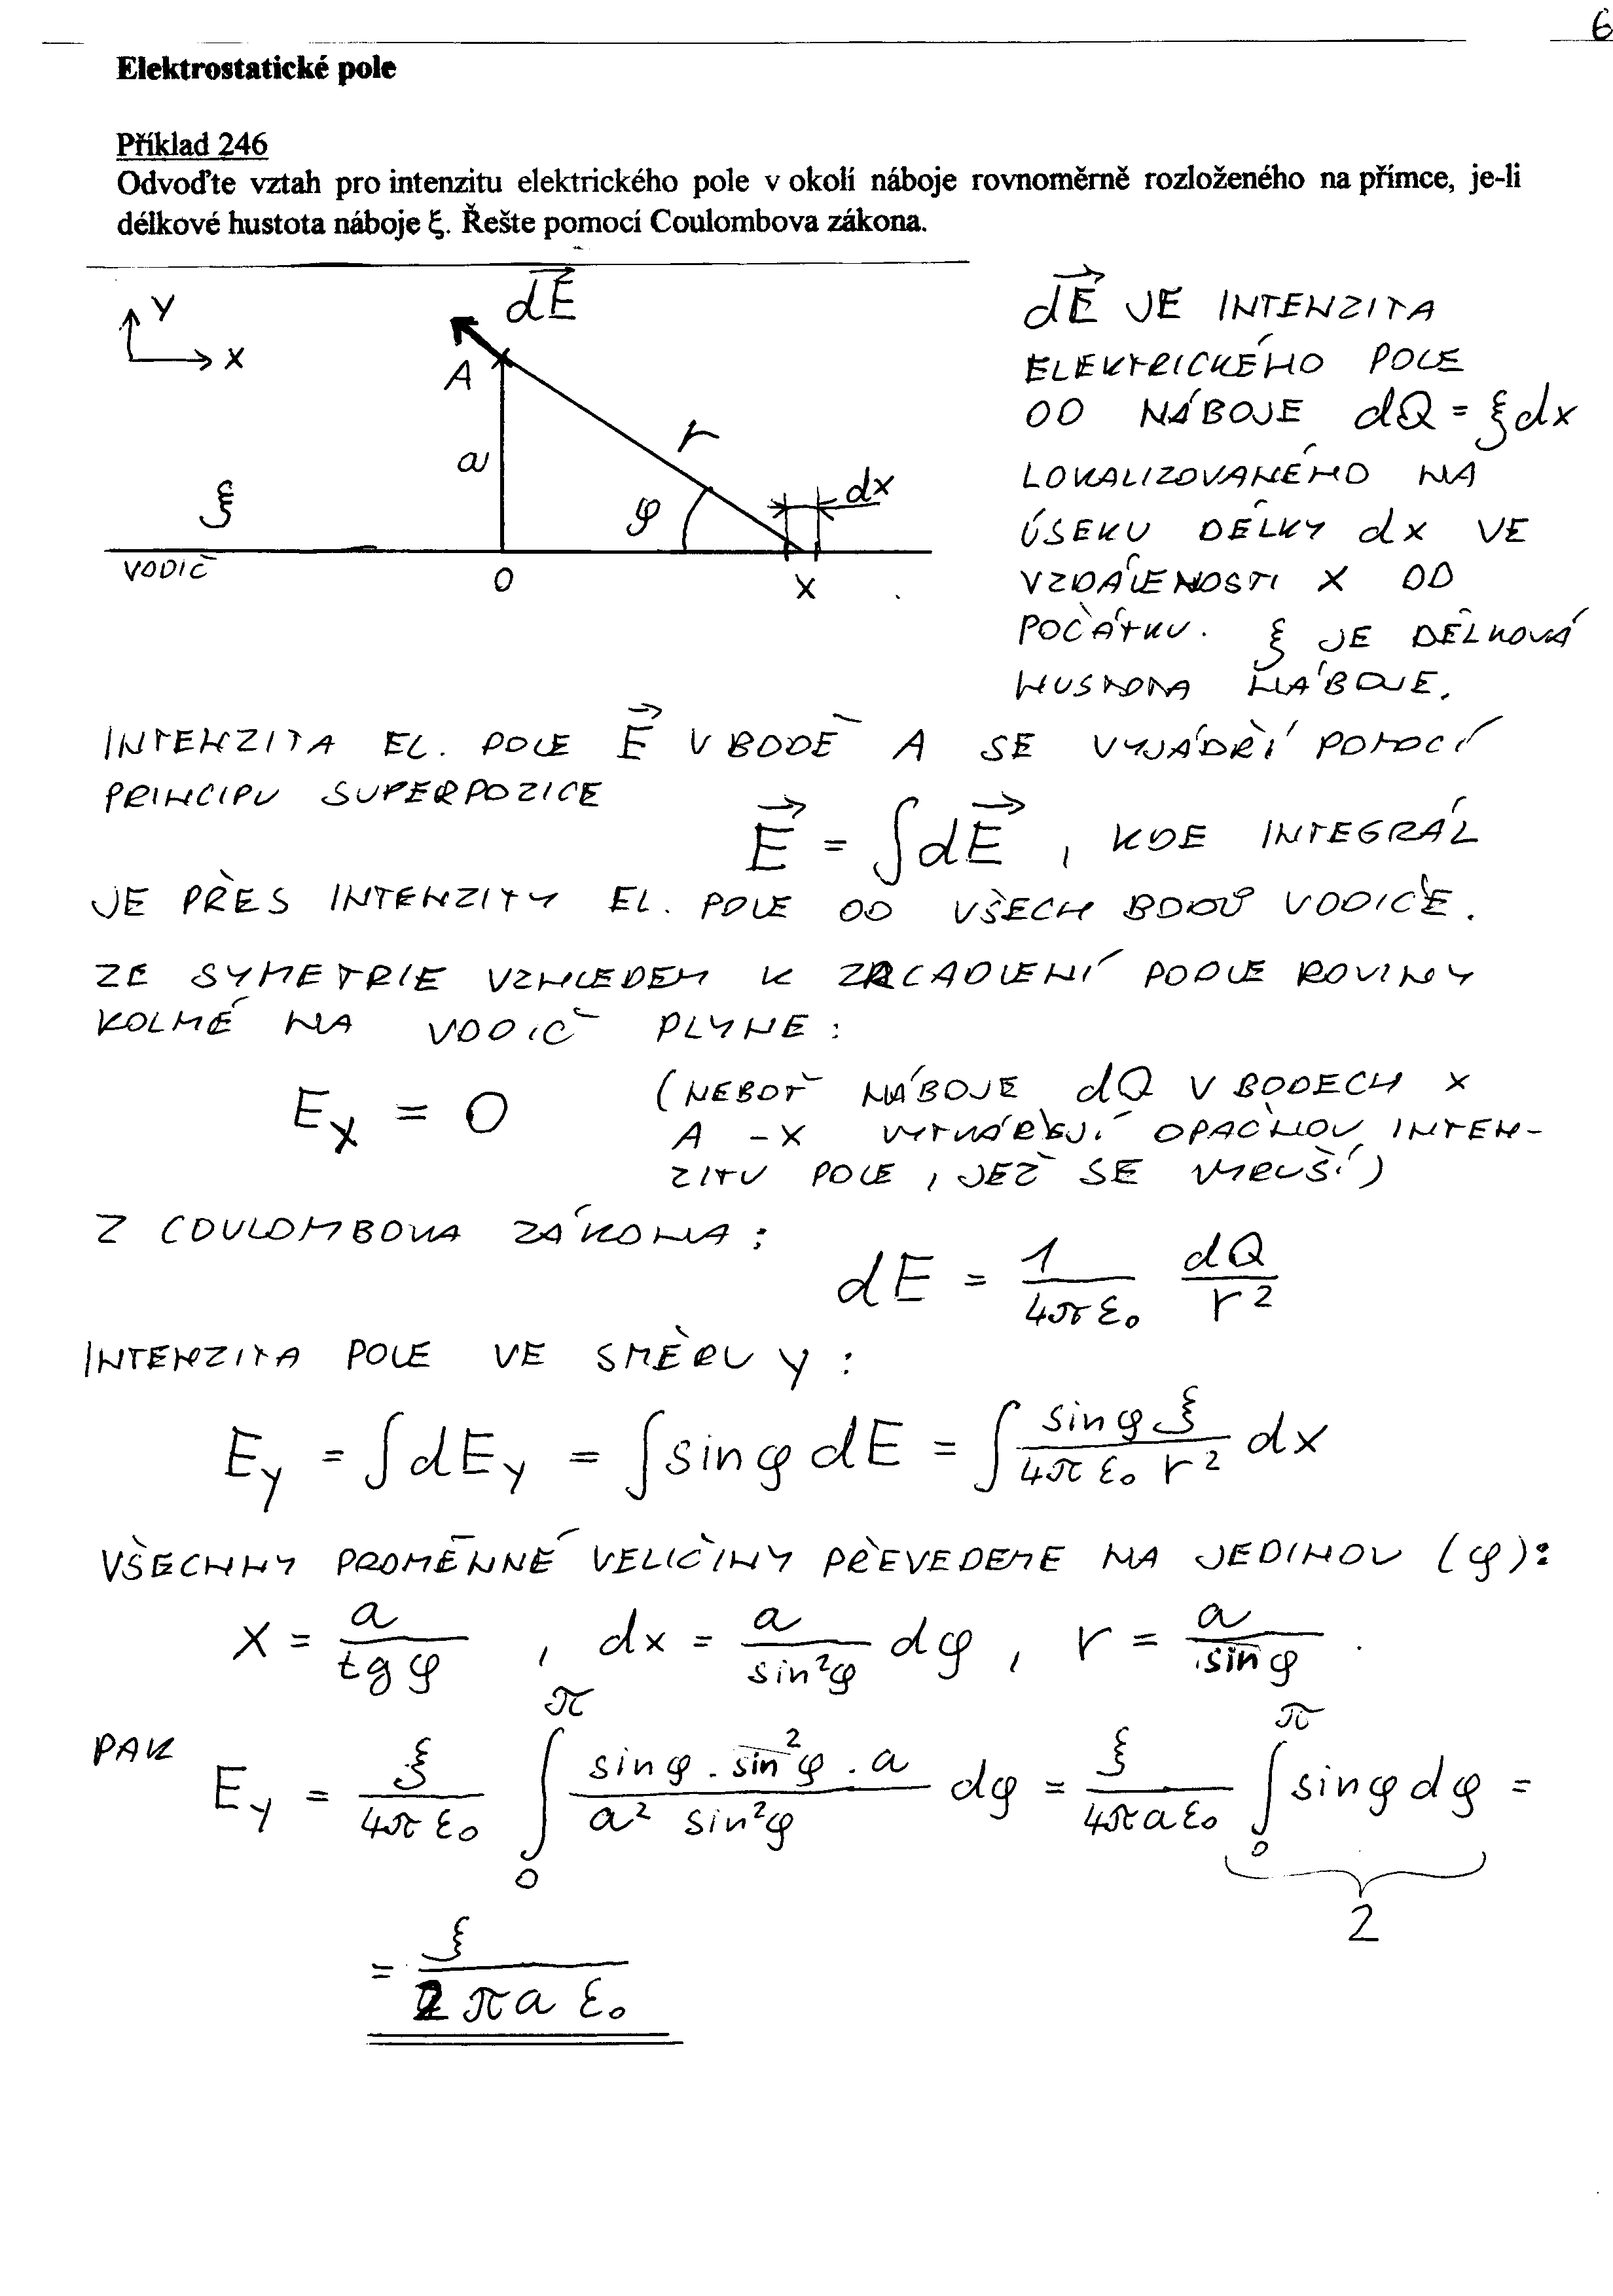 6
Elektrostatické pole
Příklad 246
Odvoďte vztah pro intenzitu elektrického pole v okolí náboje rovnoměrně rozloženého na přímce, je-li
délkové hustota náboje ξ. Řešte pomocí Coulombova zákona.
Y
X
dE⃗
A
a
r
φ
dx
ξ
VODIČ
O
X
dE⃗ JE INTENZITA
ELEKTRICKÉHO POLE
OD NÁBOJE dQ = ξdx
LOKALIZOVANÉHO NA
ÚSEKU DÉLKY dx VE
VZDÁLENOSTI X OD
POČÁTKU. ξ JE DÉLKOVÁ
HUSTOTA NÁBOJE.
INTENZITA EL. POLE E⃗ V BODĚ A SE VYJÁDŘÍ POMOCÍ
PRINCIPU SUPERPOZICE
E⃗ = ∫dE⃗ , KDE INTEGRÁL
JE PŘES INTENZITY EL. POLE OD VŠECH BODŮ VODIČE.
ZE SYMETRIE VZHLEDEM K ZRCADLENÍ PODLE ROVINY
KOLMÉ NA VODIČ PLYNE:
E_x = 0 (NEBOŤ NÁBOJE dQ V BODECH X
A -X VYTVÁŘEJÍ OPAČNOU INTEN-
ZITU POLE, JEŽ SE VYRUŠÍ)
Z COULOMBOVA ZÁKONA:
dE = 1/(4πε₀) dQ/r²
INTENZITA POLE VE SMĚRU Y:
E_y = ∫dE_y = ∫sinφ dE = ∫ (sinφ ξ)/(4πε₀ r²) dx
VŠECHNY PROMĚNNÉ VELIČINY PŘEVEDEME NA JEDINOU (φ):
X = a/tgφ , dx = a/sin²φ dφ , r = a/sinφ .
PAK E_y = ξ/(4πε₀) ∫₀^π (sinφ . sin²φ . a)/(a² sin²φ) dφ = ξ/(4πaε₀) ∫₀^π sinφ dφ =
2
= ξ/(2πaε₀)